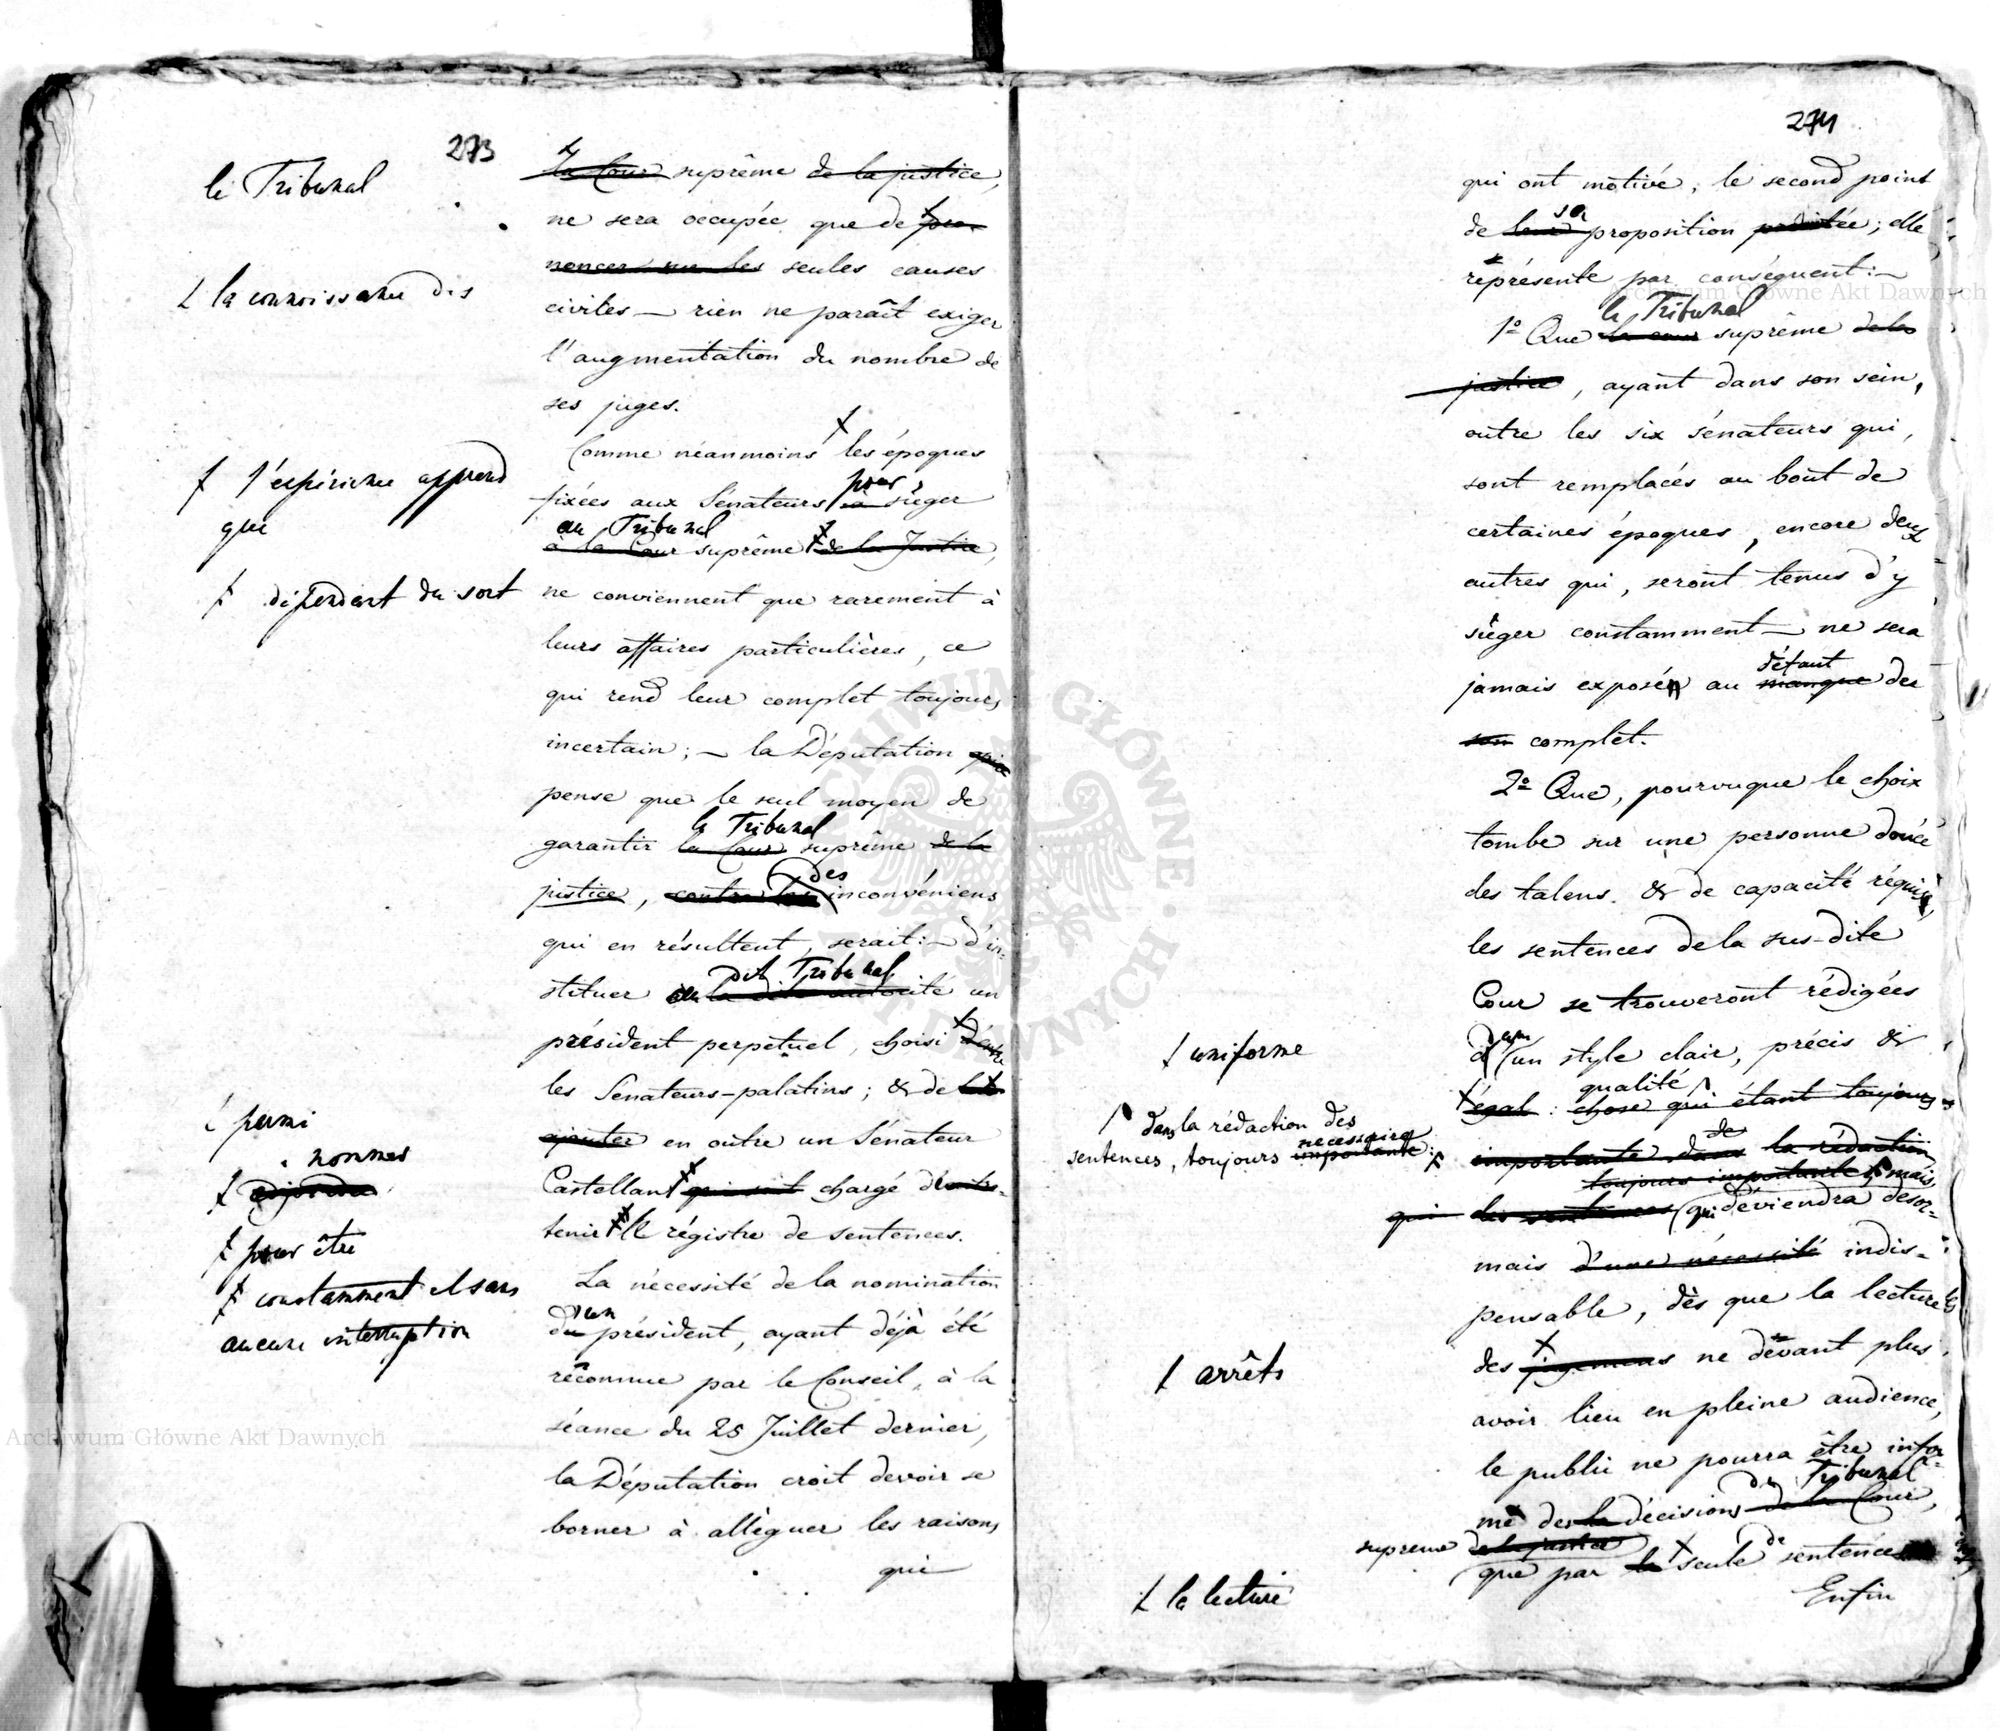 273
le Tribunal
Ɫ la connoissance des
Ɫ l'expérience apprend
que
Ɫ dépendent du sort
Ɫ parmi
nommer
Ɫ
Ɫ pour être
Ɫ constamment et sans
aucune interruption
La Cour suprême de la justice,
ne sera occupée que de pro-
noncer sur les seules causes
civiles — rien ne paraît exiger
l'augmentation du nombre de
ses juges.
Comme néanmoins les époques
fixées aux Sénateurs à pour siéger
au Tribunal
à la Cour suprême de la Justice,
ne conviennent que rarement à
leurs affaires particulières, ce
qui rend leur complet toujours
incertain; — la Députation
pense que le seul moyen de
le Tribunal
garantir la Cour suprême de la
des
justice, contre les inconvéniens
qui en résultent, serait: — d'in-
dit Tribunal
stituer la dite autorité un
président perpétuel, choisi d'entre
les Sénateurs-palatins; & de
ajouter en outre un Sénateur
Castellan qui soit chargé d'entre-
tenir le régistre de sentences.
La nécessité de la nomination
d'un
du président, ayant déjà été
réconnue par le Conseil, à la
séance du 25 Juillet dernier,
la Députation croit devoir se
borner à alléguer les raisons
qui
274
qui ont motivé, le second point
sa
de leur proposition; elle
réprésente par conséquent: —
le Tribunal
1º Que la cour suprême de la
justice, ayant dans son sein,
outre les six sénateurs qui,
sont remplacés au bout de
certaines époques, encore deux
autres qui, seront tenus d'y
siéger constamment — ne sera
défaut
jamais exposé au manque de
son complet.
2º Que, pourvuque le choix
tombe sur une personne douée
des talens & de capacité réquise,
les sentences de la sus-dite
Cour se trouveront rédigées
d'un style clair, précis &
Ɫ uniforme
qualité
égal: chose qui étant toujours
Ɫ dans la rédaction des
nécessaire
sentences, toujours importante:
de
importante dans la rédaction
toujours importante mais
qui des sentences qui déviendra désor-
mais d'une nécessité indis-
pensable, dès que la lecture
des jugemens ne dévant plus
Ɫ arrêts
avoir lieu en pleine audience,
le public ne pourra être infor-
du Tribunal
mé des décisions de la Cour
suprême de la justice
que par la seule de sentences
Ɫ la lecture
Enfin
Archiwum Główne Akt Dawnych
Archiwum Główne Akt Dawnych
ARCHIWUM GŁÓWNE AKT DAWNYCH